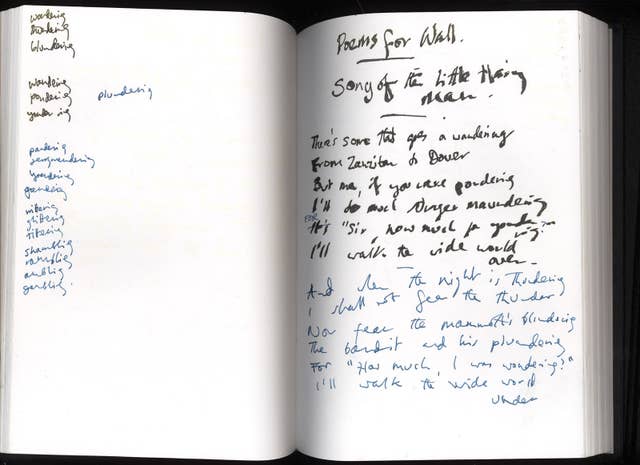 wondering
blundering
wandering
pondering
plundering
pandering
gerrymandering
glittering
shambling
rambling
ambling
gambling
Poems for Wall.
Song of the Little Hairy
Man.
There's some that goes a wandering
From Zanzibar to Dover
But me, if you were pondering
I'll do much longer maundering
For
It's "Sir, how much for
I'll walk the wide world
over
And when the night is Thundering
I shall not fear the thunder
Nor fear the mammoth's blundering
The bandit and his plundering
For "How much, I was wondering?"
I'll walk the wide world
under